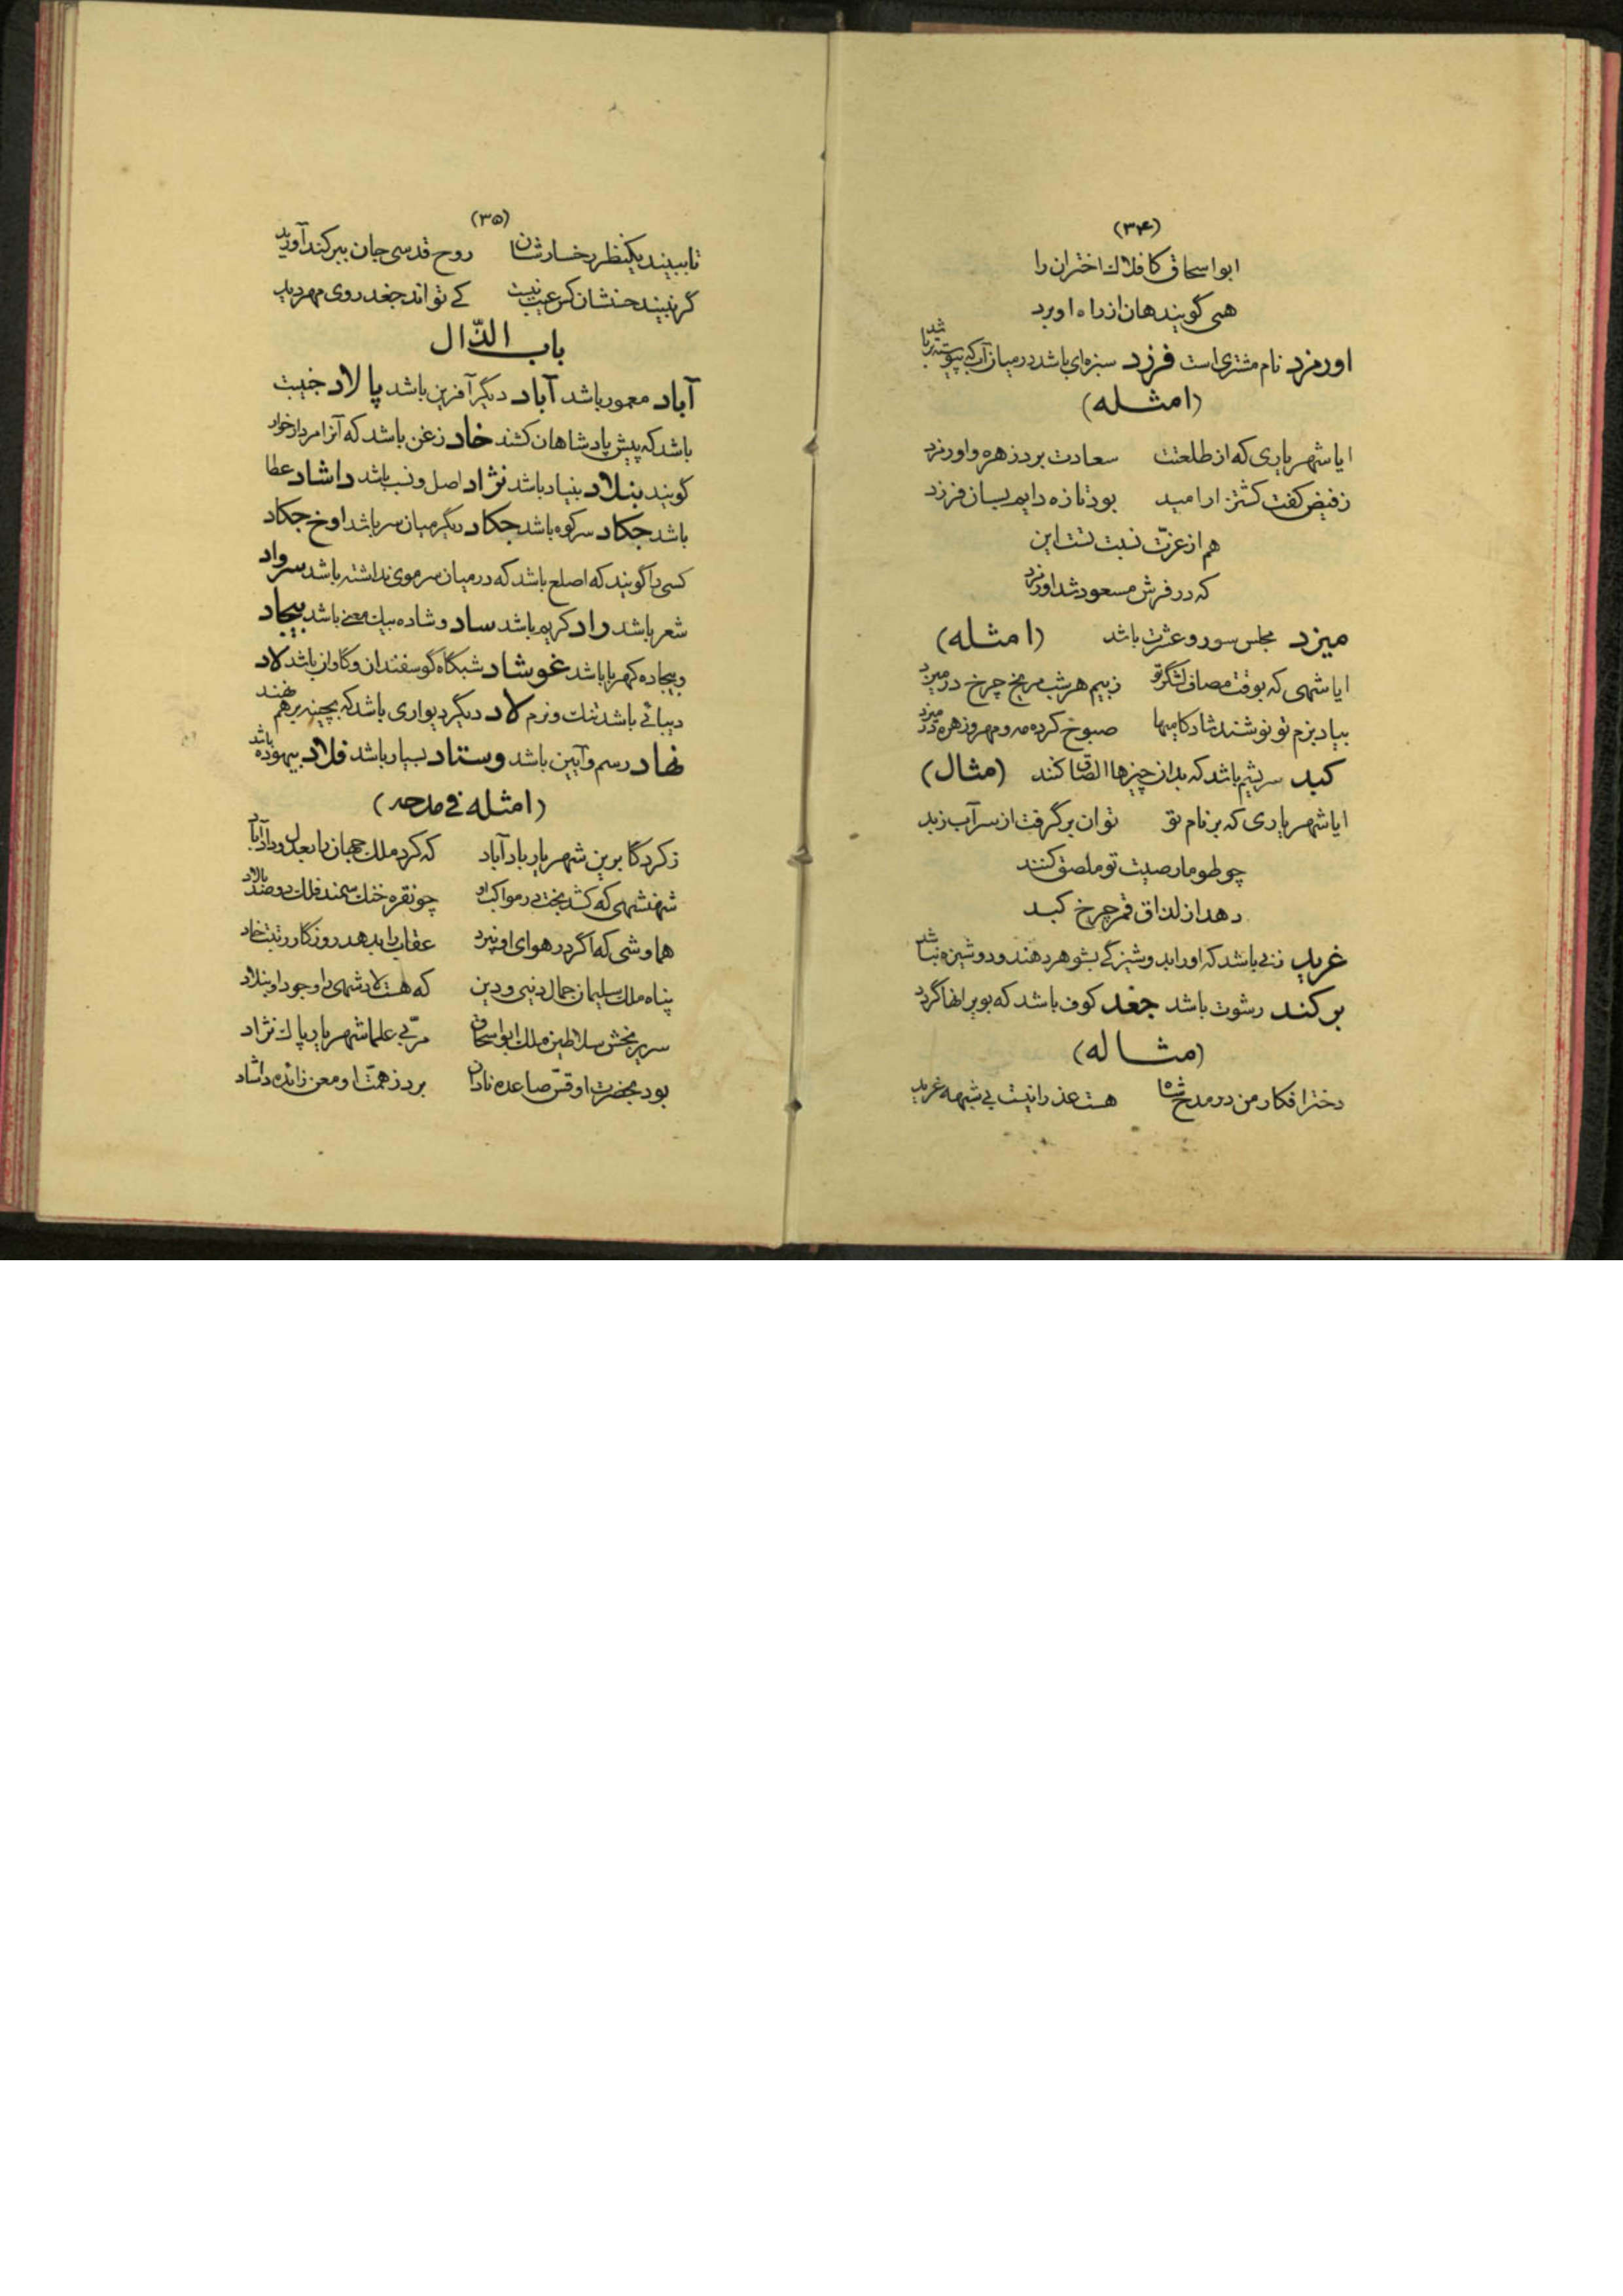 (۳۴)
ابو اسحاق کافلاك اختران را
همی گویند هان از راه او برد
اورمزد نام مشتری است فرزد سبزه‌ای باشد در میان آب که پیوسته برپا باشد
(امثله)
ایا شهریاری که از طلعتت سعادت برد زهره و اورمزد
ز فیض کفت کشتزار امید بود تازه دایم بسان فرزد
هم از عزّت نسبت تست این
که در فرش مسعود شد اورمزد
میزد مجلس سور و عشرت باشد (امثله)
ایا شهی که بوقت مصاف لشگر تو ز بیم هر شب مریخ چرخ در میزد
بیاد بزم تو نوشند شادکامیها صبوح کرده مه و مهر و زهره در میزد
کبد سریشم باشد که بدان چیزها الصاق کنند (مثال)
ایا شهریاری که بر نام تو توان برگرفت از سر آب زبد
چو طومار صیت تو ملصق کنند
دهد از لذاق قمر چرخ کبد
غرید زنی باشد که او را بدوشیزگی بشوهر دهند و دوشیزه نباشد
برکند رشوت باشد جغد کوف باشد که بویرانها گردد
(مثاله)
دختر افکار من در مدح شاه هست عذرا نیست بی شبهه غرید
(۳۵)
تا ببیند یکنظر رخسارشان روح قدسی جان ببرکند آورید
گر نبیند حسنشان کس عیب نیست کے تواند جغد روی مهر دید
باب الذّال
آباد معمور باشد آباد دیگر آفرین باشد پالاد جنیبت
باشد که پیش پادشاهان کشند خاد زغن باشد که آنرا مردارخوار
گویند بنلاد بنیاد باشد نژاد اصل و نسب باشد داشاد عطا
باشد جکاد سر کوه باشد جکاد دیگر میان سر باشد اوخ جکاد
کسی را گویند که اصلع باشد که در میان سر موی نداشته باشد سرواد
شعر باشد راد کریم باشد ساد و شاده بیك معنی باشد بیجاد
و بیجاده کهربا باشد غوشاد شبگاه گوسفندان و گاوان باشد لاد
دیبائی باشد تنك و نرم لاد دیگر دیواری باشد که بچینه برهم نهند
نهاد رسم و آیین باشد وستاد بسیار باشد فلاد بیهوده باشد
(امثله فی مدحه)
ز کردگار برین شهریار باد آباد که کرد ملك جهان را بعدل و داد آباد
شهنشهی که کشد بخت در مواکب او چو نقره خنك سمند فلك دو صد بالاد
هما وشی که اگر در هوای او نپرد عقاب را بدهد روزگار رتبت خاد
پناه ملك سلیمان جمال دنیی و دین که هست لاد شهی را وجود او بنلاد
سریر بخش سلاطین ملك ابو اسحاق مربّی علما شهریار پاك نژاد
بود بحضرت او قسّ صاعده نادان برد ز همّت او معن زائده داشاد